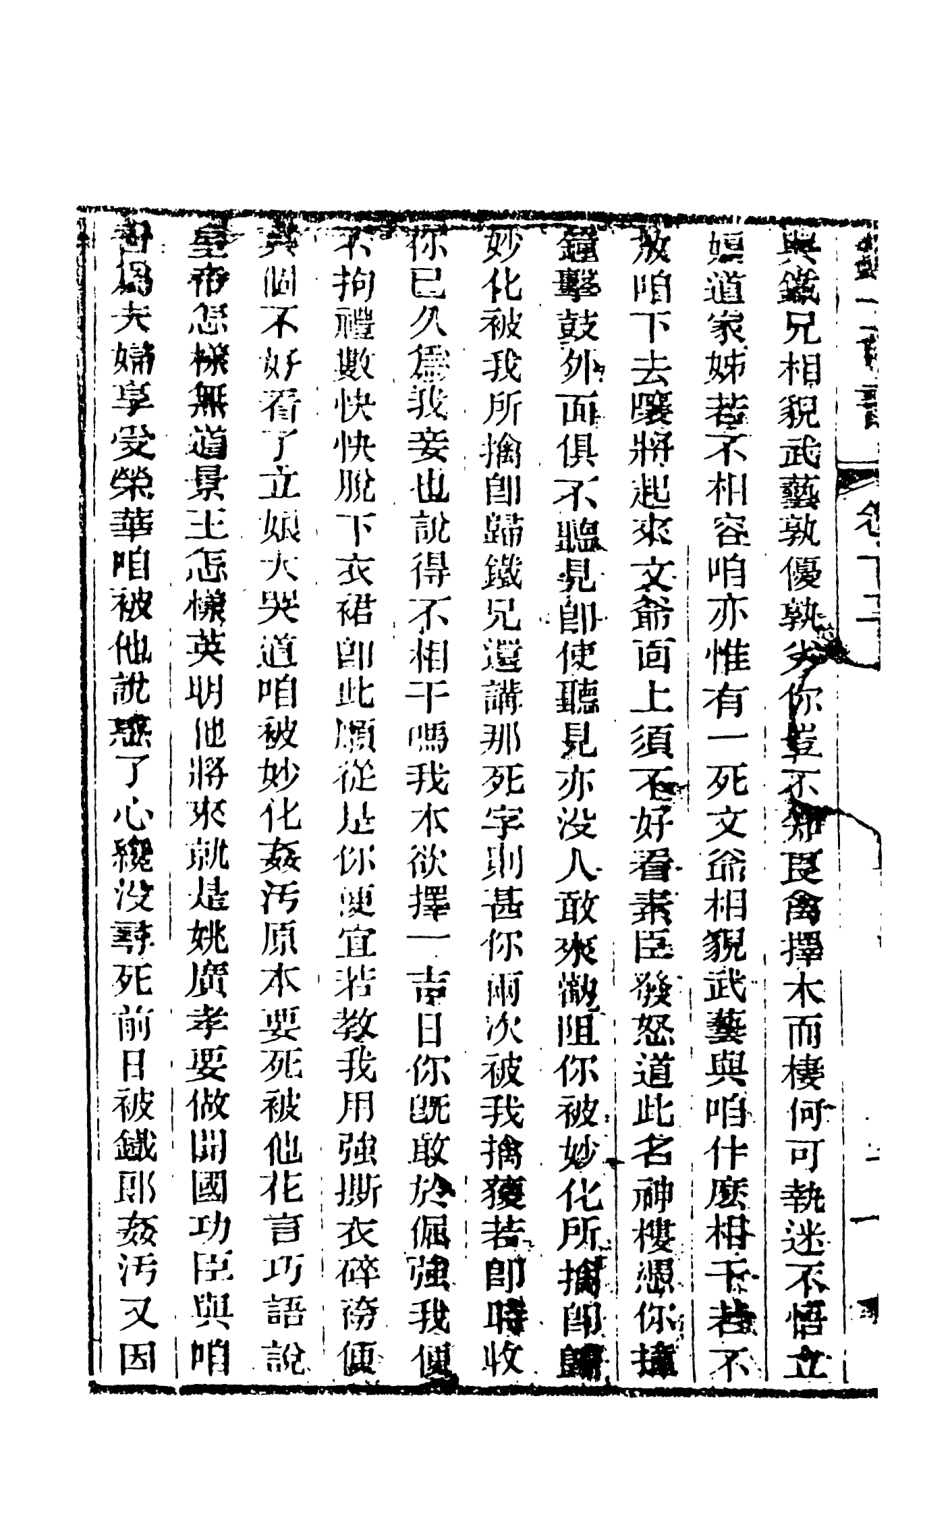 與鐵兄相貌武藝孰優孰劣你豈不知良禽擇木而棲何可執迷不悟立
娘道家姊若不相容咱亦惟有一死文爺相貌武藝與咱什麽相干若不
放咱下去嚷將起來文爺面上須不好看素臣發怒道此名神樓憑你撞
鐘擊鼓外面俱不聽見卽使聽見亦没人敢來勸阻你被妙化所擒卽歸
妙化被我所擒卽歸鐵兄還講那死字則甚你兩次被我擒獲若卽時收
你已久爲我妾也說得不相干嗎我本欲擇一吉日你旣敢於倔強我便
不拘禮數快快脫下衣裙卽此順從是你便宜若教我用強撕衣碎褲便
異個不好看了立娘大哭道咱被妙化姦汚原本要死被他花言巧語說
皇帝怎樣無道景王怎樣英明他將來就是姚廣孝要做開國功臣與咱
爲夫婦享受榮華咱被他說惑了心纔没尋死前日被鐵郎姦汚又因